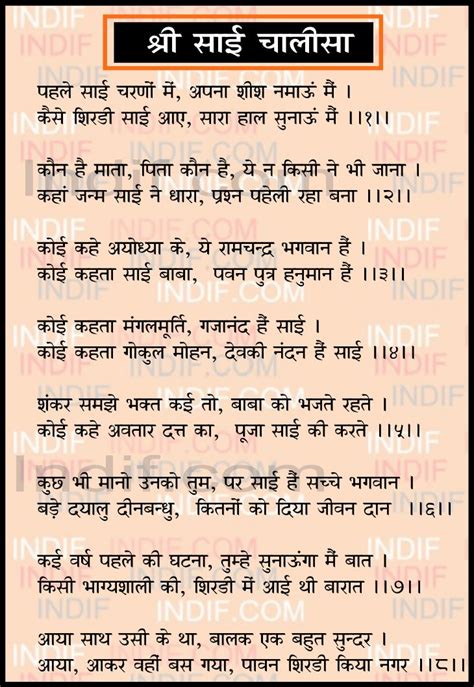 श्री साई चालीसा
पहले साई चरणों में, अपना शीश नमाऊं मैं ।
कैसे शिरडी साई आए, सारा हाल सुनाऊं मैं ।।१।।
कौन है माता, पिता कौन है, ये न किसी ने भी जाना ।
कहां जन्म साई ने धारा, प्रश्न पहेली रहा बना ।।२।।
कोई कहे अयोध्या के, ये रामचन्द्र भगवान हैं ।
कोई कहता साई बाबा, पवन पुत्र हनुमान हैं ।।३।।
कोई कहता मंगलमूर्ति, गजानंद हैं साई ।
कोई कहता गोकुल मोहन, देवकी नंदन हैं साई ।।४।।
शंकर समझे भक्त कई तो, बाबा को भजते रहते ।
कोई कहे अवतार दत्त का, पूजा साई की करते ।।५।।
कुछ भी मानो उनको तुम, पर साई हैं सच्चे भगवान ।
बड़े दयालु दीनबन्धु, कितनों को दिया जीवन दान ।।६।।
कई वर्ष पहले की घटना, तुम्हे सुनाऊंगा मैं बात ।
किसी भाग्यशाली की, शिरडी में आई थी बारात ।।७।।
आया साथ उसी के था, बालक एक बहुत सुन्दर ।
आया, आकर वहीं बस गया, पावन शिरडी किया नगर ।।८।।
INDIF.COM
Indif.com